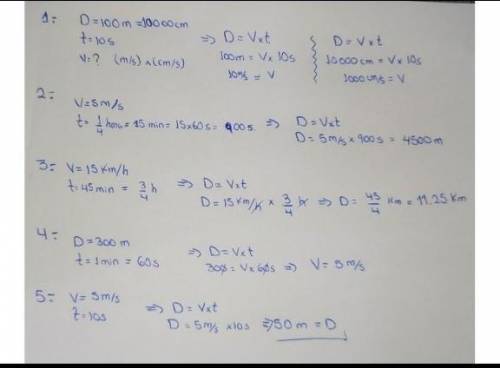 1= D=100m=10000cm
t=10s
V=? (m/s) ∧ (cm/s)
⇒ D=Vxt
100m=Vx10s
10m/s=V
D=Vxt
10000cm=Vx10s
1000cm/s=V
2= V=5m/s
t=1/4 hora=15min=15x60s=900s. ⇒ D=Vxt
D=5m/s x 900s = 4500m
3= V=15Km/h
t=45min=3/4 h ⇒ D=Vxt
D=15Km/h x 3/4 h ⇒ D=45/4 Km=11.25Km
4= D=300m
t=1min=60s ⇒ D=Vxt
300=Vx60s ⇒ V=5m/s
5= V=5m/s
t=10s ⇒ D=Vxt
D=5m/s x10s ⇒ 50m=D